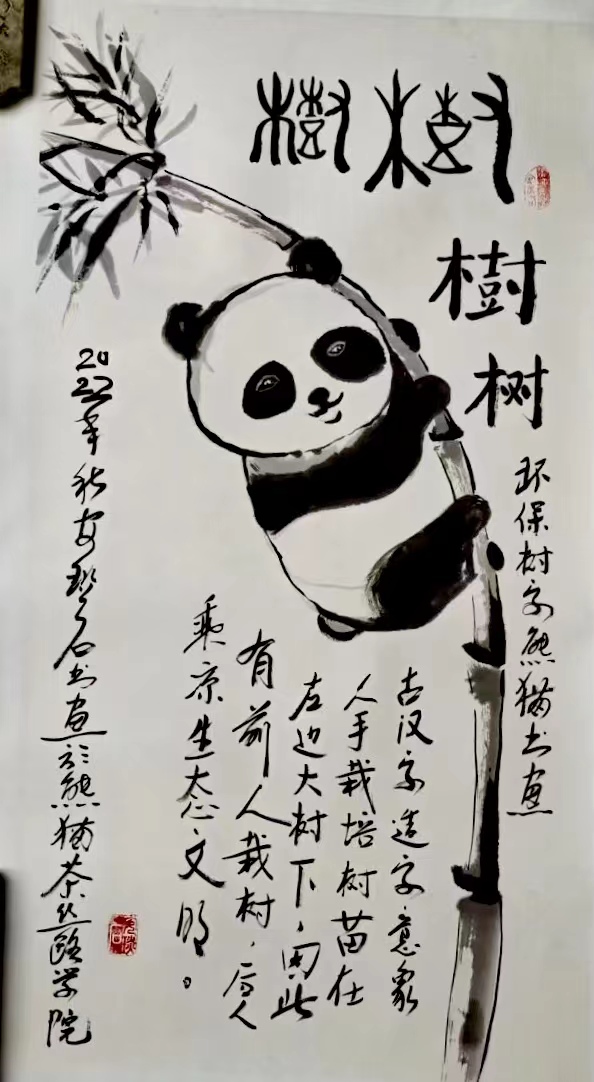 樹 樹
樹
树
环保树字熊猫书画
古汉字造字意象
人手栽培树苗在
左边大树下，因此
有前人栽树，后人
乘凉生态文明。
2022年秋安琴石书画於熊猫茶丝路学院